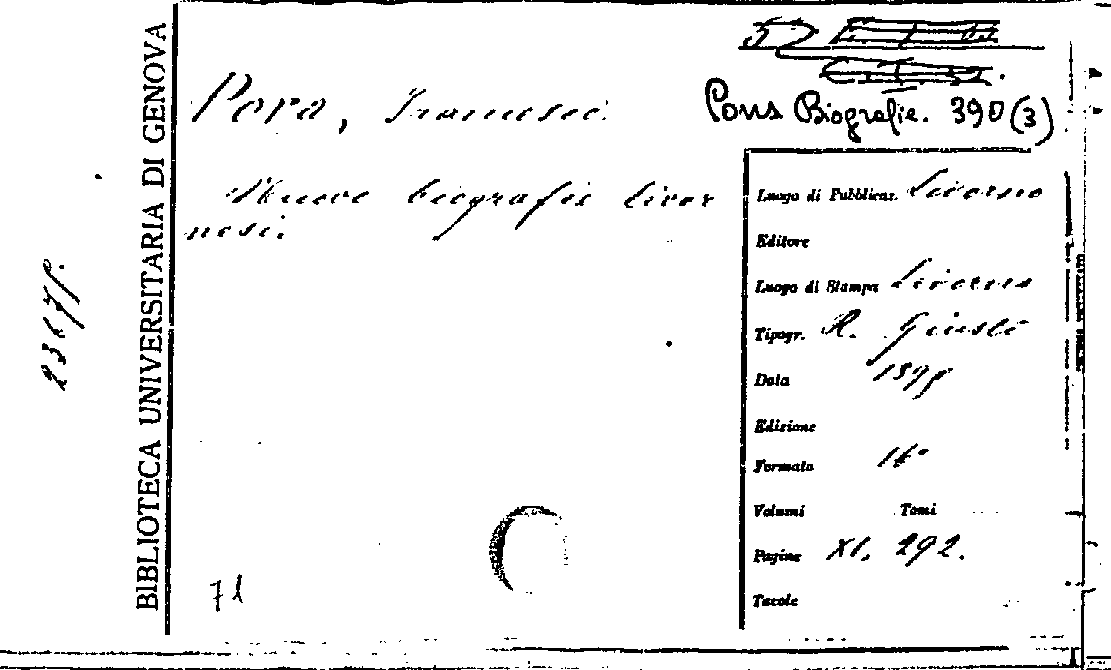 BIBLIOTECA UNIVERSITARIA DI GENOVA
52
Pons Biografie. 390 (3)
Pera, Francesco.
Nuove biografie livor
nesi.
Luogo di Pubblicaz. Livorno
Editore
Luogo di Stampa Livorno
Tipogr. R. Giusti
Data
Edizione
Formato 16°
Volumi Tomi
Pagine XI, 292.
Tavole
71